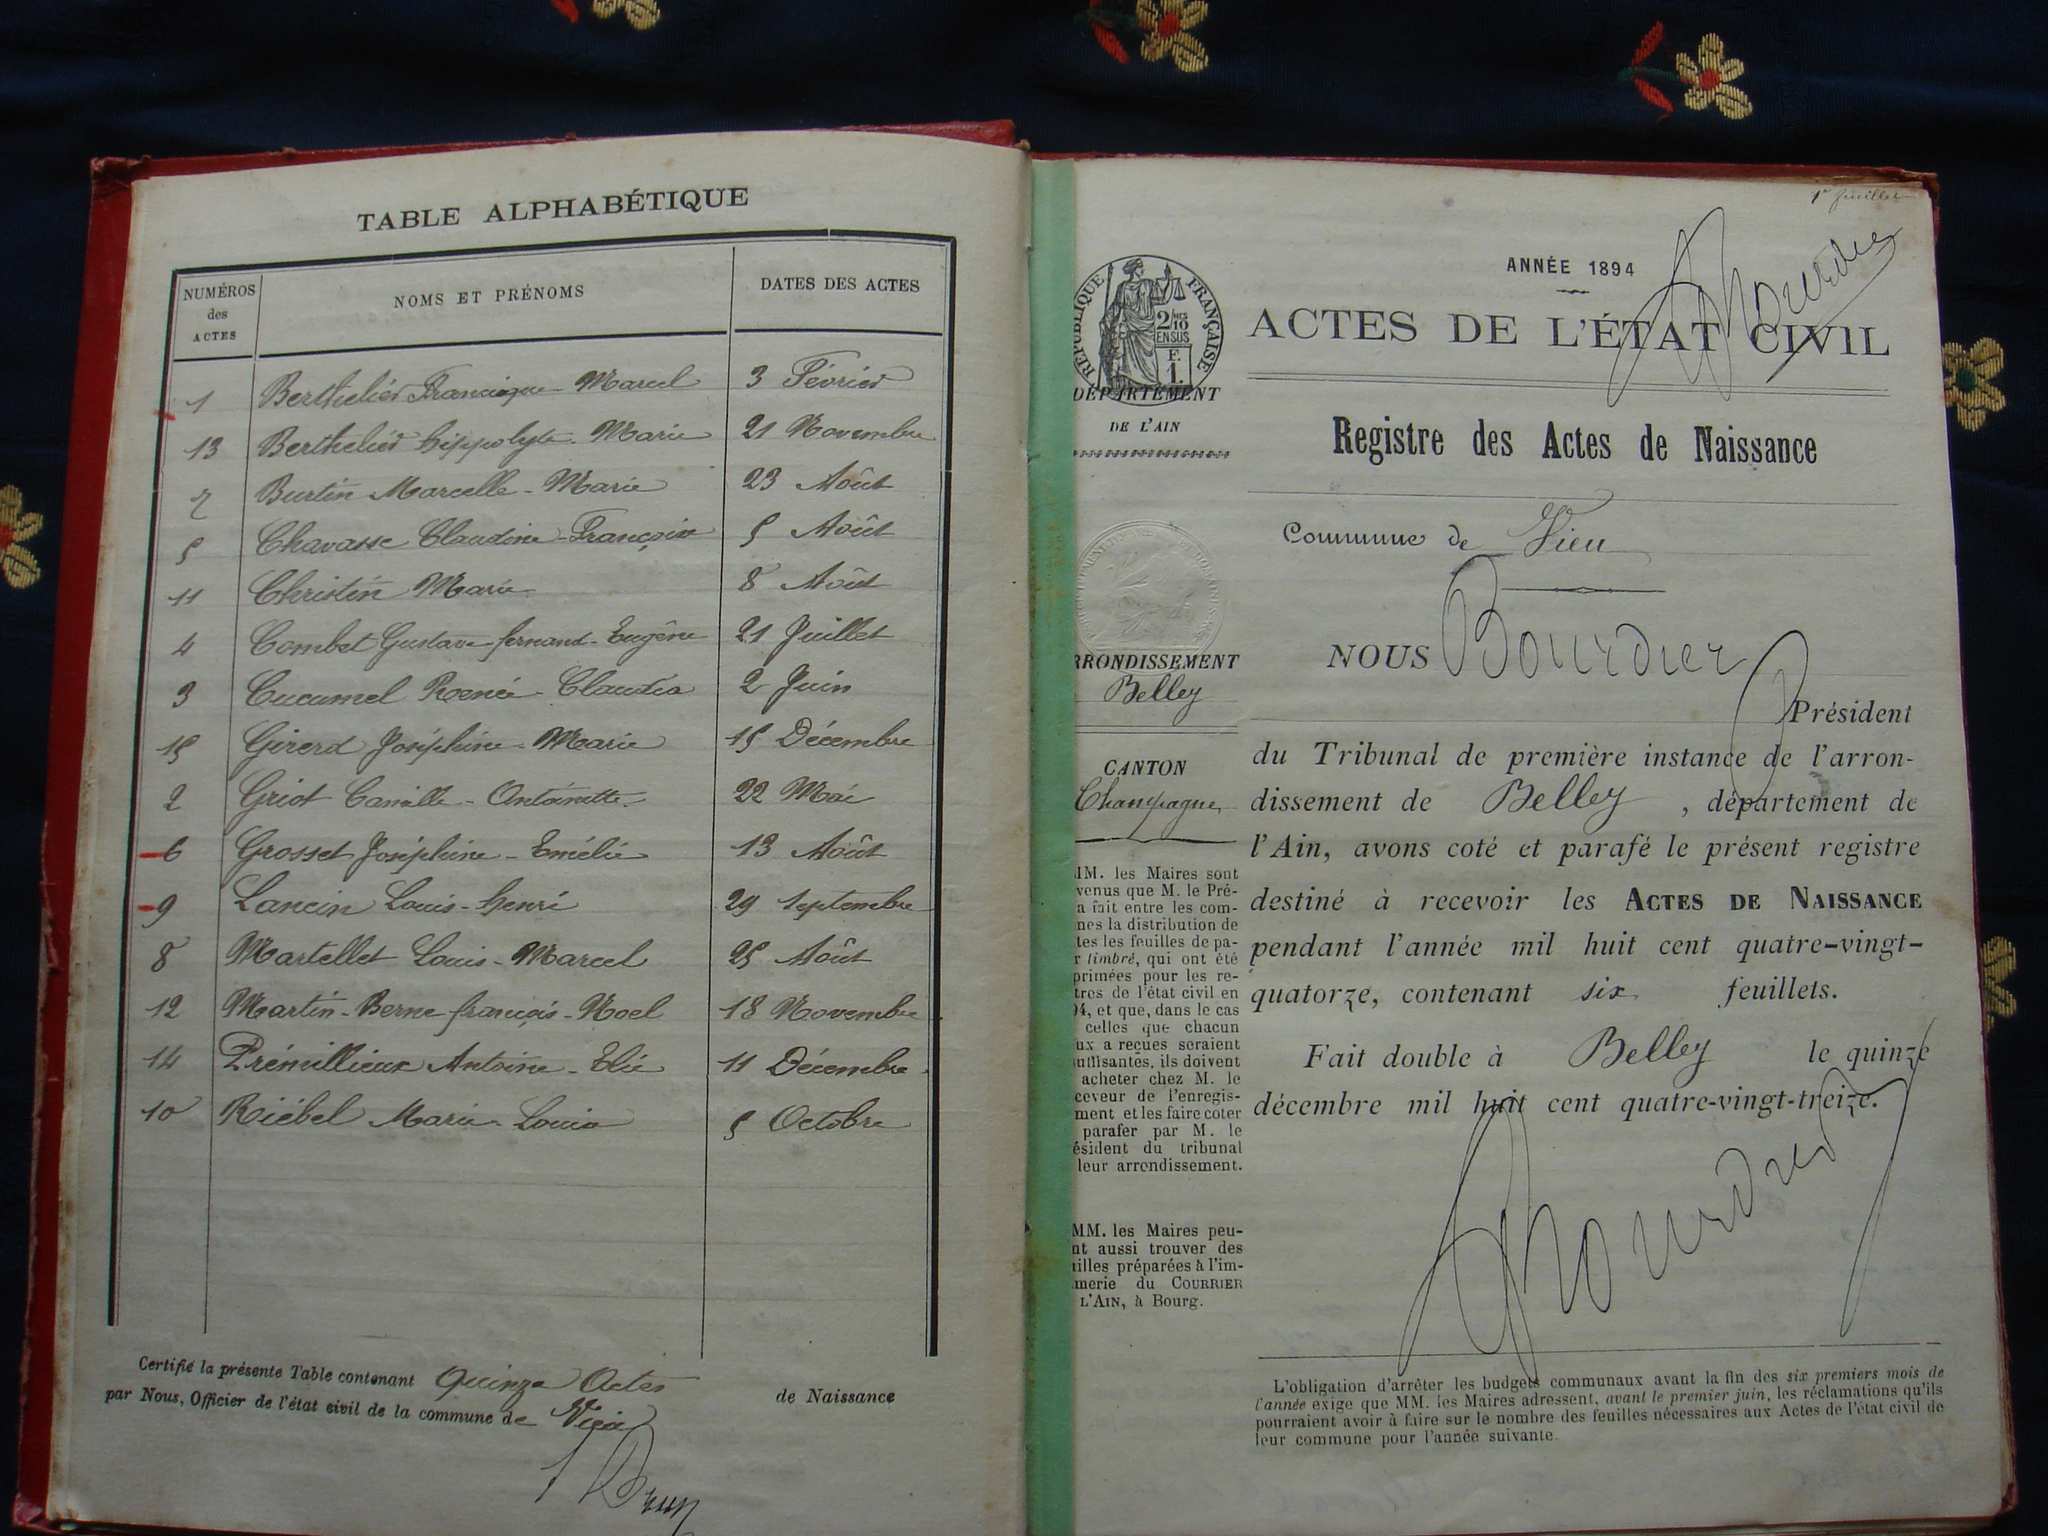 TABLE ALPHABÉTIQUE
NUMÉROS des ACTES
NOMS ET PRÉNOMS
DATES DES ACTES
1 Berthelier Francisque-Marcel 3 Février
13 Berthelier hippolyte-Marie 21 Novembre
7 Burtin Marcelle-Marie 23 Août
5 Chavasse Claudine-Françoise 5 Août
11 Christin Marie 8 Août
4 Combet Gustave-fernand-Eugène 21 Juillet
3 Cucumel Renée-Claudia 2 Juin
15 Girerd Joséphine-Marie 15 Décembre
2 Griot Camille-Antoinette 22 Mai
6 Grosset Joséphine-Emélie 13 Août
9 Lancin Louis-henri 29 Septembre
8 Martellet Louis-Marcel 25 Août
12 Martin-Berne françois-Noel 18 Novembre
14 Prémillieux Antoine-Elie 11 Décembre
10 Riébel Marie-Louise 5 Octobre
Certifié la présente Table contenant Quinze Actes de Naissance
par Nous, Officier de l'état civil de la commune de Vieu
1er feuillet
Bourdier
ANNÉE 1894
RÉPUBLIQUE FRANÇAISE
2/10
EN SUS
F.
1.
ACTES DE L'ÉTAT CIVIL
DÉPARTEMENT
DE L'AIN
Registre des Actes de Naissance
Commune de Vieu
NOUS Bourdier
RRONDISSEMENT
Belley
Président
du Tribunal de première instance de l'arron-
CANTON
Champagne
dissement de Belley, département de
l'Ain, avons coté et parafé le présent registre
destiné à recevoir les ACTES DE NAISSANCE
pendant l'année mil huit cent quatre-vingt-
quatorze, contenant six feuillets.
Fait double à Belley le quinze
décembre mil huit cent quatre-vingt-treize.
Bourdier
MM. les Maires sont
venus que M. le Pré-
a fait entre les com-
nes la distribution de
tes les feuilles de pa-
r timbré, qui ont été
primées pour les re-
tres de l'état civil en
94, et que, dans le cas
celles que chacun
ux a reçues seraient
uffisantes, ils doivent
acheter chez M. le
ceveur de l'enregis-
ment et les faire coter
parafer par M. le
ésident du tribunal
leur arrondissement.
MM. les Maires peu-
nt aussi trouver des
illes préparées à l'im-
merie du COURRIER
L'AIN, à Bourg.
L'obligation d'arrêter les budgets communaux avant la fin des six premiers mois de
l'année exige que MM. les Maires adressent, avant le premier juin, les réclamations qu'ils
pourraient avoir à faire sur le nombre des feuilles nécessaires aux Actes de l'état civil de
leur commune pour l'année suivante.